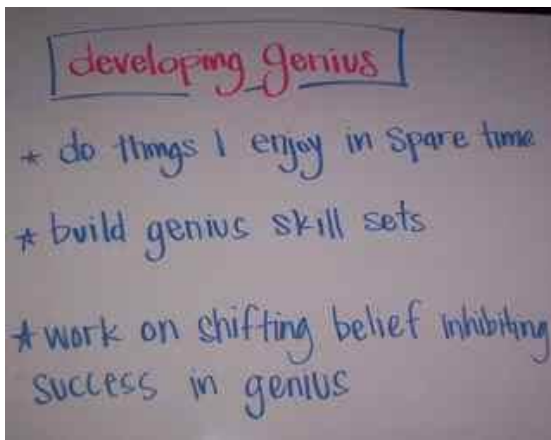 developing genius
* do things I enjoy in spare time
* build genius skill sets
* work on shifting belief inhibiting
success in genius